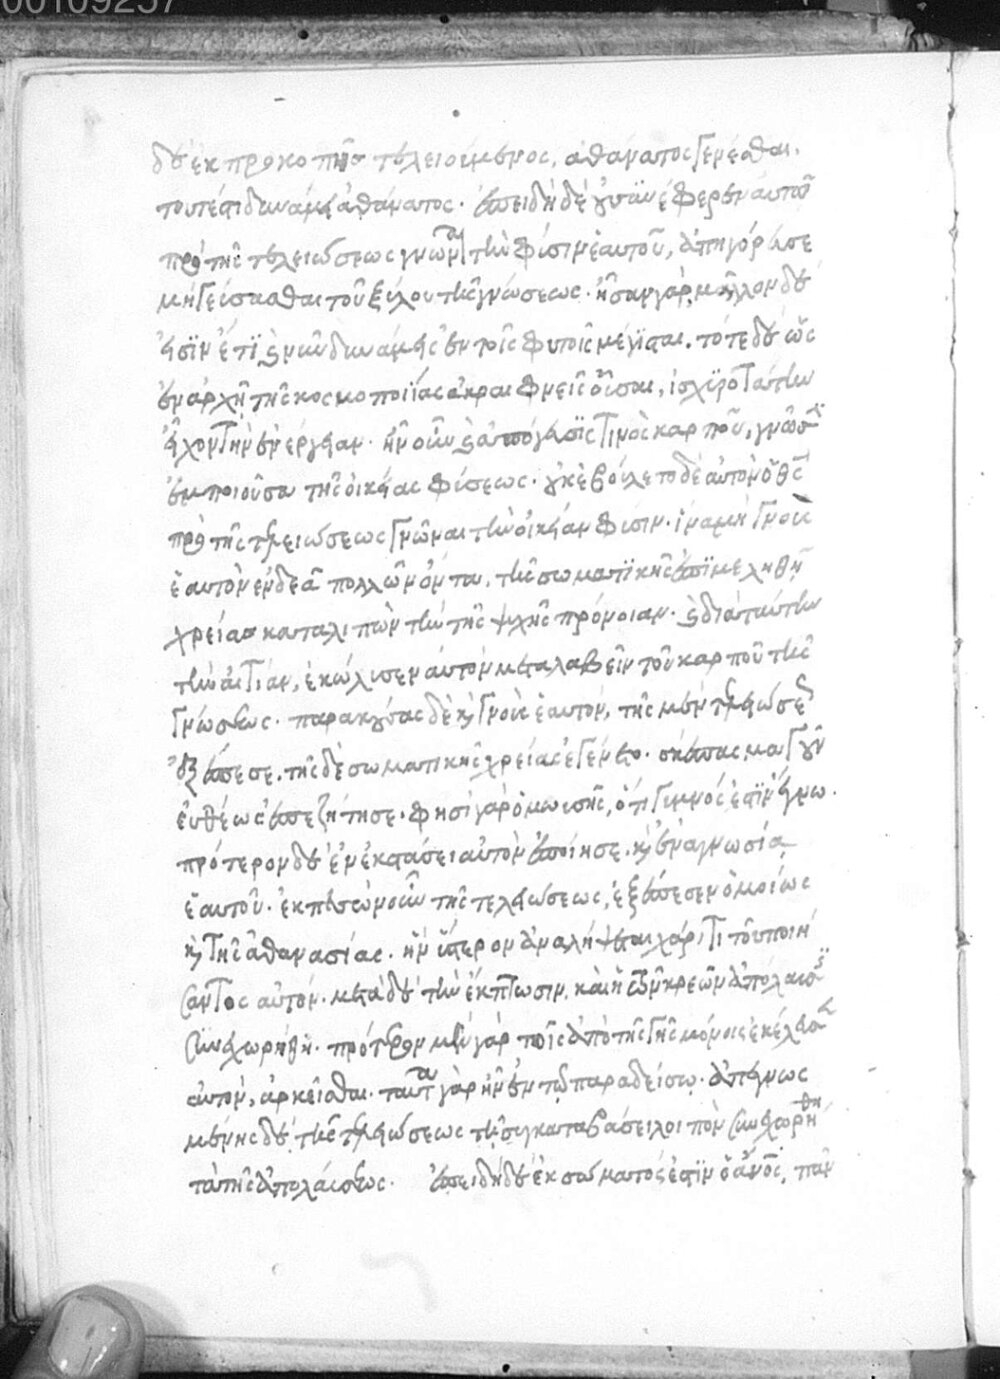 00109257
δὲ ἐκ προκοπῆς τελειούμενος, ἀθάνατος γενέσθαι.
τουτέστι δυνάμει ἀθάνατος. ἐπειδὴ δὲ οὐ συνέφερεν αὐτῷ
πρὸ τῆς τελειώσεως γνῶναι τὴν φύσιν ἑαυτοῦ, ἀπηγόρευσε
μὴ γεύσασθαι τοῦ ξύλου τῆς γνώσεως. ἦσαν γὰρ, μᾶλλον δὲ
εἰσὶν ἔτι καὶ νῦν δυνάμεις ἐν τοῖς φυτοῖς μέγισται. τότε δὲ ὡς
ἐν ἀρχῇ τῆς κοσμοποιΐας ἀκραιφνεῖς οὖσαι, ἰσχυροτάτην
εἶχον τὴν ἐνέργειαν. ἦν οὖν καὶ ἀπόγευσις τινὸς καρποῦ, γνῶσιν
ἐμποιοῦσα τῆς οἰκείας φύσεως. οὐκ ἐβούλετο δὲ αὐτὸν ὁ θεὸς
πρὸ τῆς τελειώσεως γνῶναι τὴν οἰκείαν φύσιν. ἵνα μὴ γνοὺς
ἑαυτὸν ἐνδεᾶ πολλῶν ὄντα, τῆς σωματικῆς ἐπιμεληθῇ
χρείας καταλιπὼν τὴν τῆς ψυχῆς πρόνοιαν. καὶ διὰ ταύτην
τὴν αἰτίαν, ἐκώλυσεν αὐτὸν μεταλαβεῖν τοῦ καρποῦ τῆς
γνώσεως. παρακούσας δὲ καὶ γνοὺς ἑαυτόν, τῆς μὲν τελειώσεως
ἐξέπεσε, τῆς δὲ σωματικῆς χρείας ἐγένετο. σκέπασμα γοῦν
εὐθέως ἐπεζήτησε. φησὶ γὰρ ὁ μωυσῆς, ὅτι γυμνός ἐστιν ἔγνω.
πρότερον δὲ ἐν ἐκστάσει αὐτὸν ἐποίησε, καὶ ἐν ἀγνωσίᾳ
ἑαυτοῦ. ἐκπεσὼν οὖν τῆς τελειώσεως, ἐξέπεσεν ὁμοίως
καὶ τῆς ἀθανασίας. ἣν ὕστερον ἀναλήψεται χάριτι τοῦ ποιή
σαντος αὐτόν. μετὰ δὲ τὴν ἔκπτωσιν, καὶ ἡ τῶν κρεῶν ἀπόλαυσις
συνεχωρήθη. πρότερον μὲν γὰρ τοῖς ἀπὸ τῆς γῆς μόνοις ἐκέλευσεν
αὐτὸν, ἀρκεῖσθαι. ταῦτα γὰρ ἦν ἐν τῷ παραδείσῳ. ἀπεγνωσ
μένης δὲ τῆς τελειώσεως τῇ συγκαταβάσει λοιπὸν συνεχωρήθη
τὰ τῆς ἀπολαύσεως. ἐπειδὴ δὲ ἐκ σώματός ἐστιν ὁ ἄνος, πᾶν